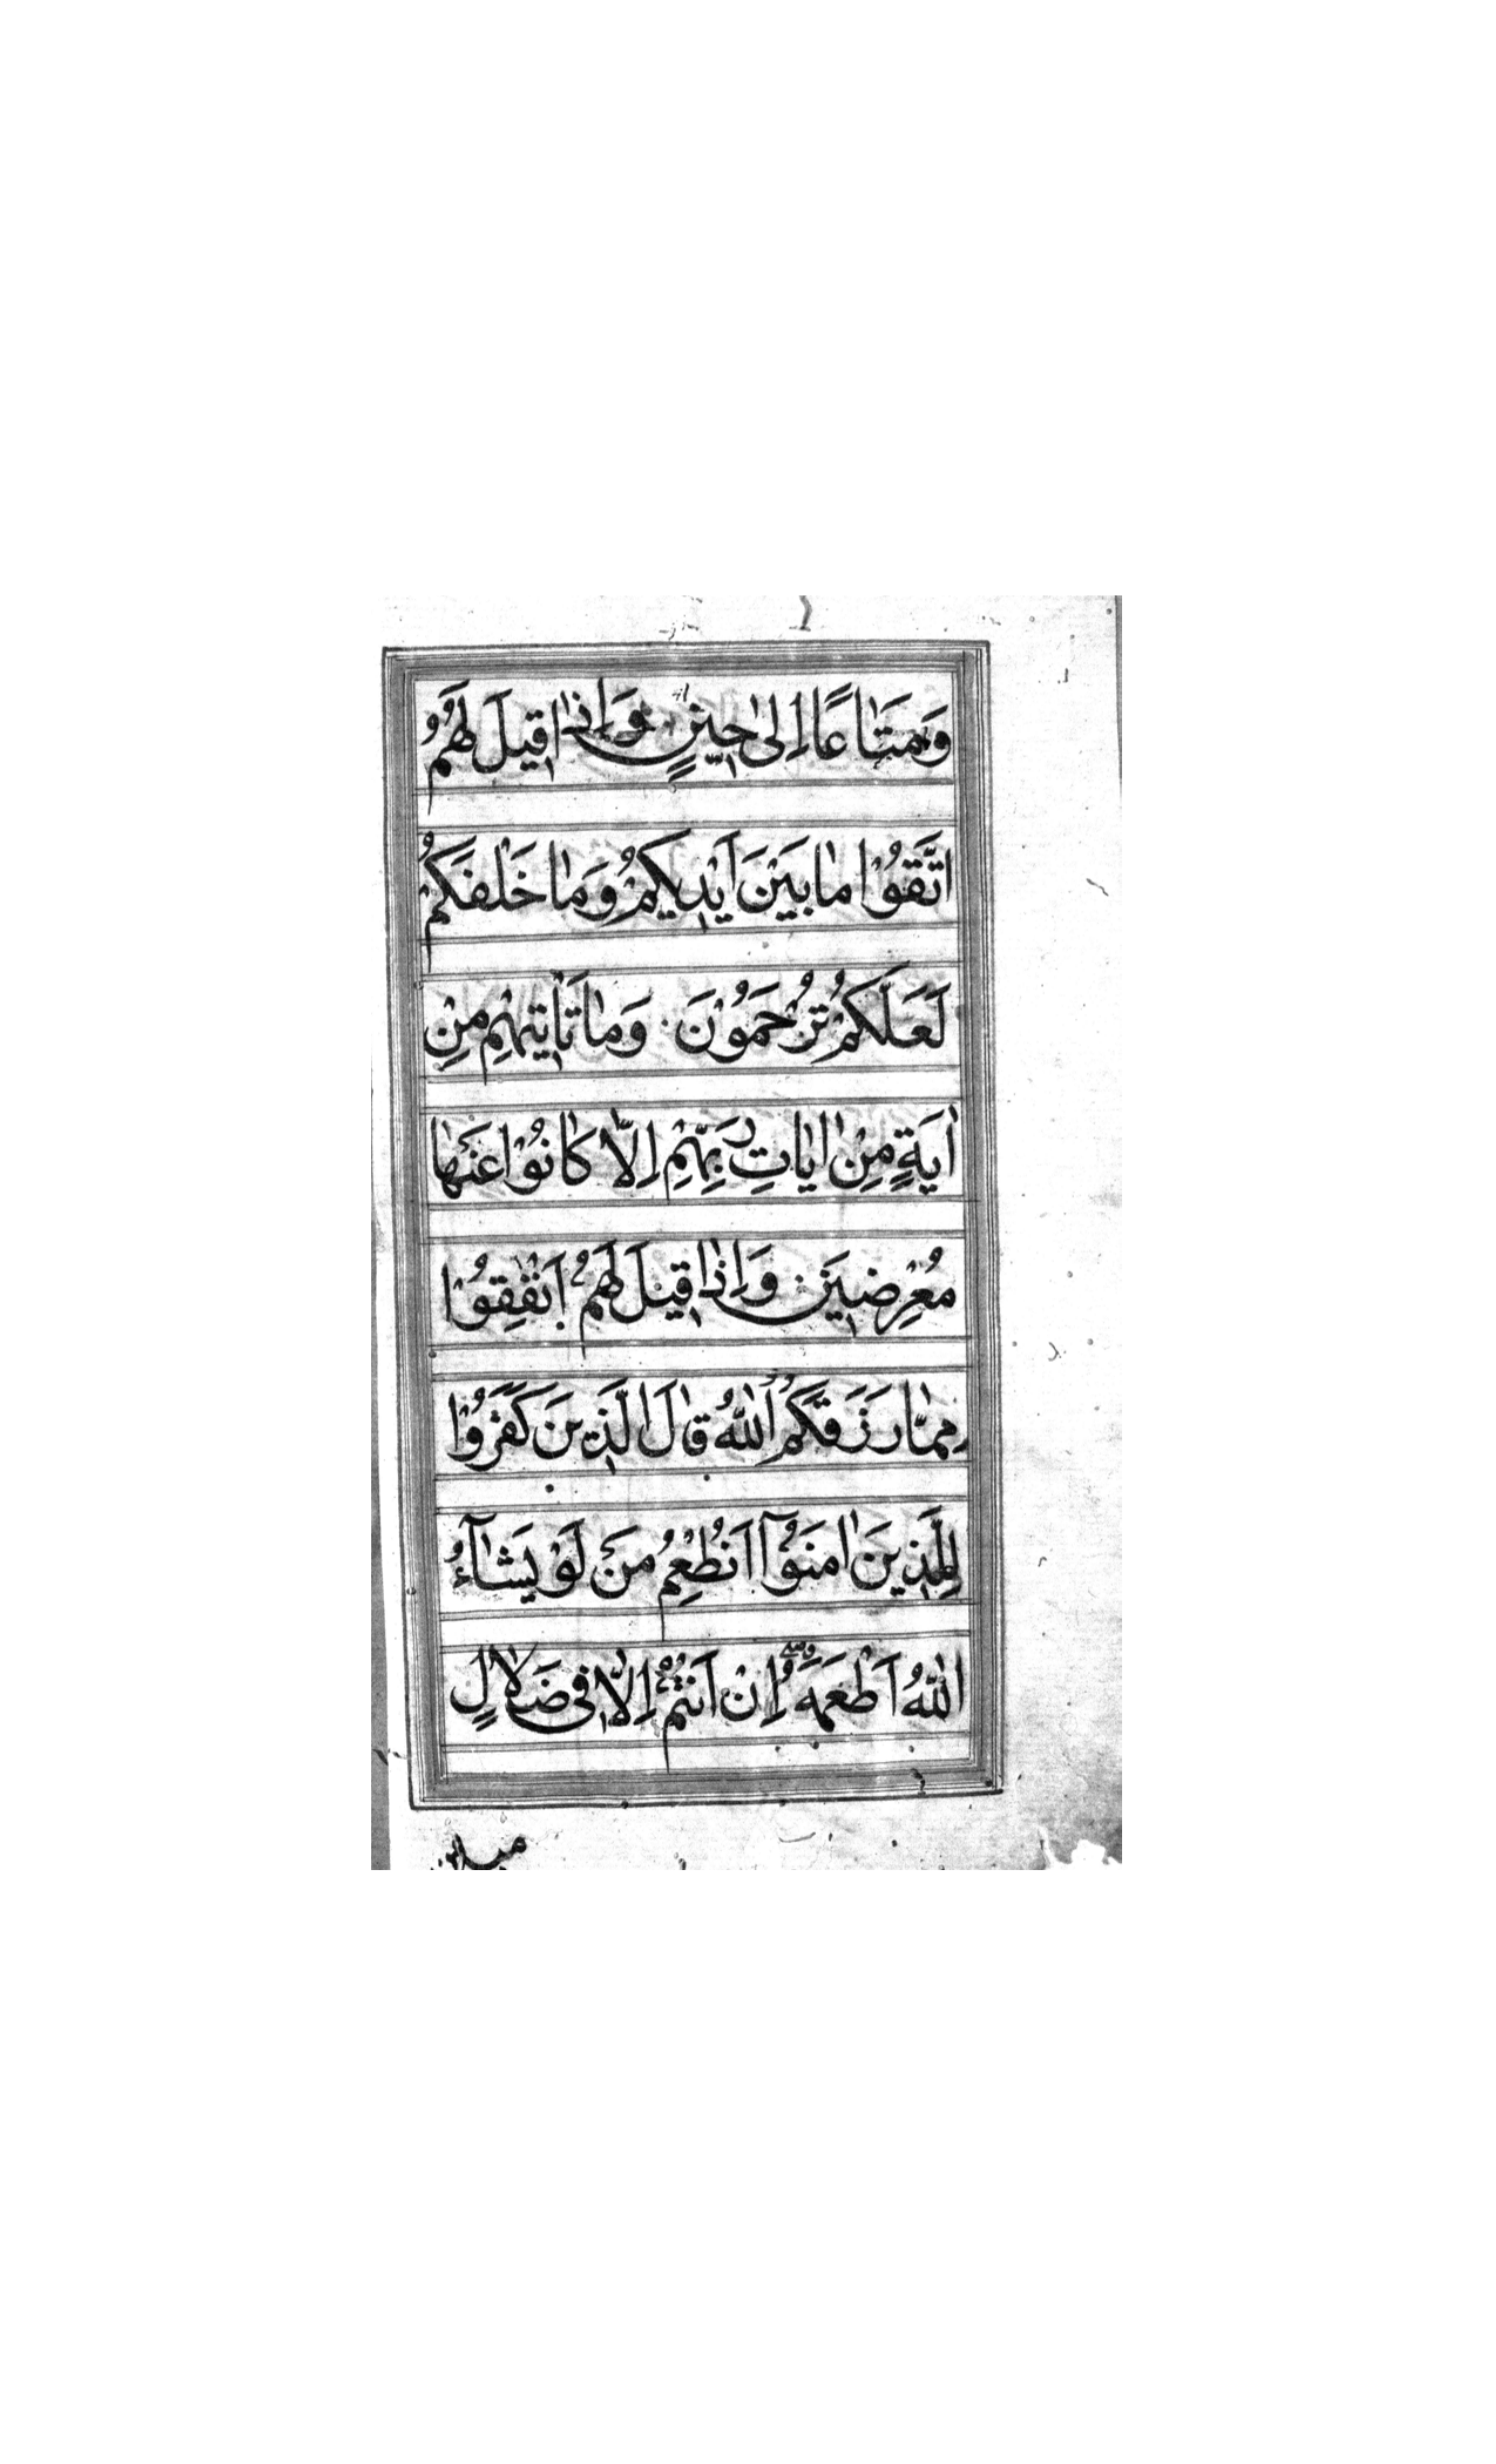 وَمَتَاعًا اِلىٰ حِينٍ وَاِذَا قِيلَ لَهُمُ
اتَّقُوْا مَا بَيْنَ اَيْدِيكُمْ وَمَا خَلْفَكُمْ
لَعَلَّكُمْ تُرْحَمُوْنَ وَمَا تَأْتِيهِمْ مِنْ
اٰيَةٍ مِنْ اٰيَاتِ رَبِّهِمْ اِلَّا كَانُوْا عَنْهَا
مُعْرِضِينَ وَاِذَا قِيلَ لَهُمْ اَنْفِقُوْا
مِمَّا رَزَقَكُمُ اللّٰهُ قَالَ الَّذِينَ كَفَرُوْا
لِلَّذِينَ اٰمَنُوْآ اَنُطْعِمُ مَنْ لَوْ يَشَآءُ
اللّٰهُ اَطْعَمَهُ اِنْ اَنْتُمْ اِلَّا فِي ضَلَالٍ
مبين